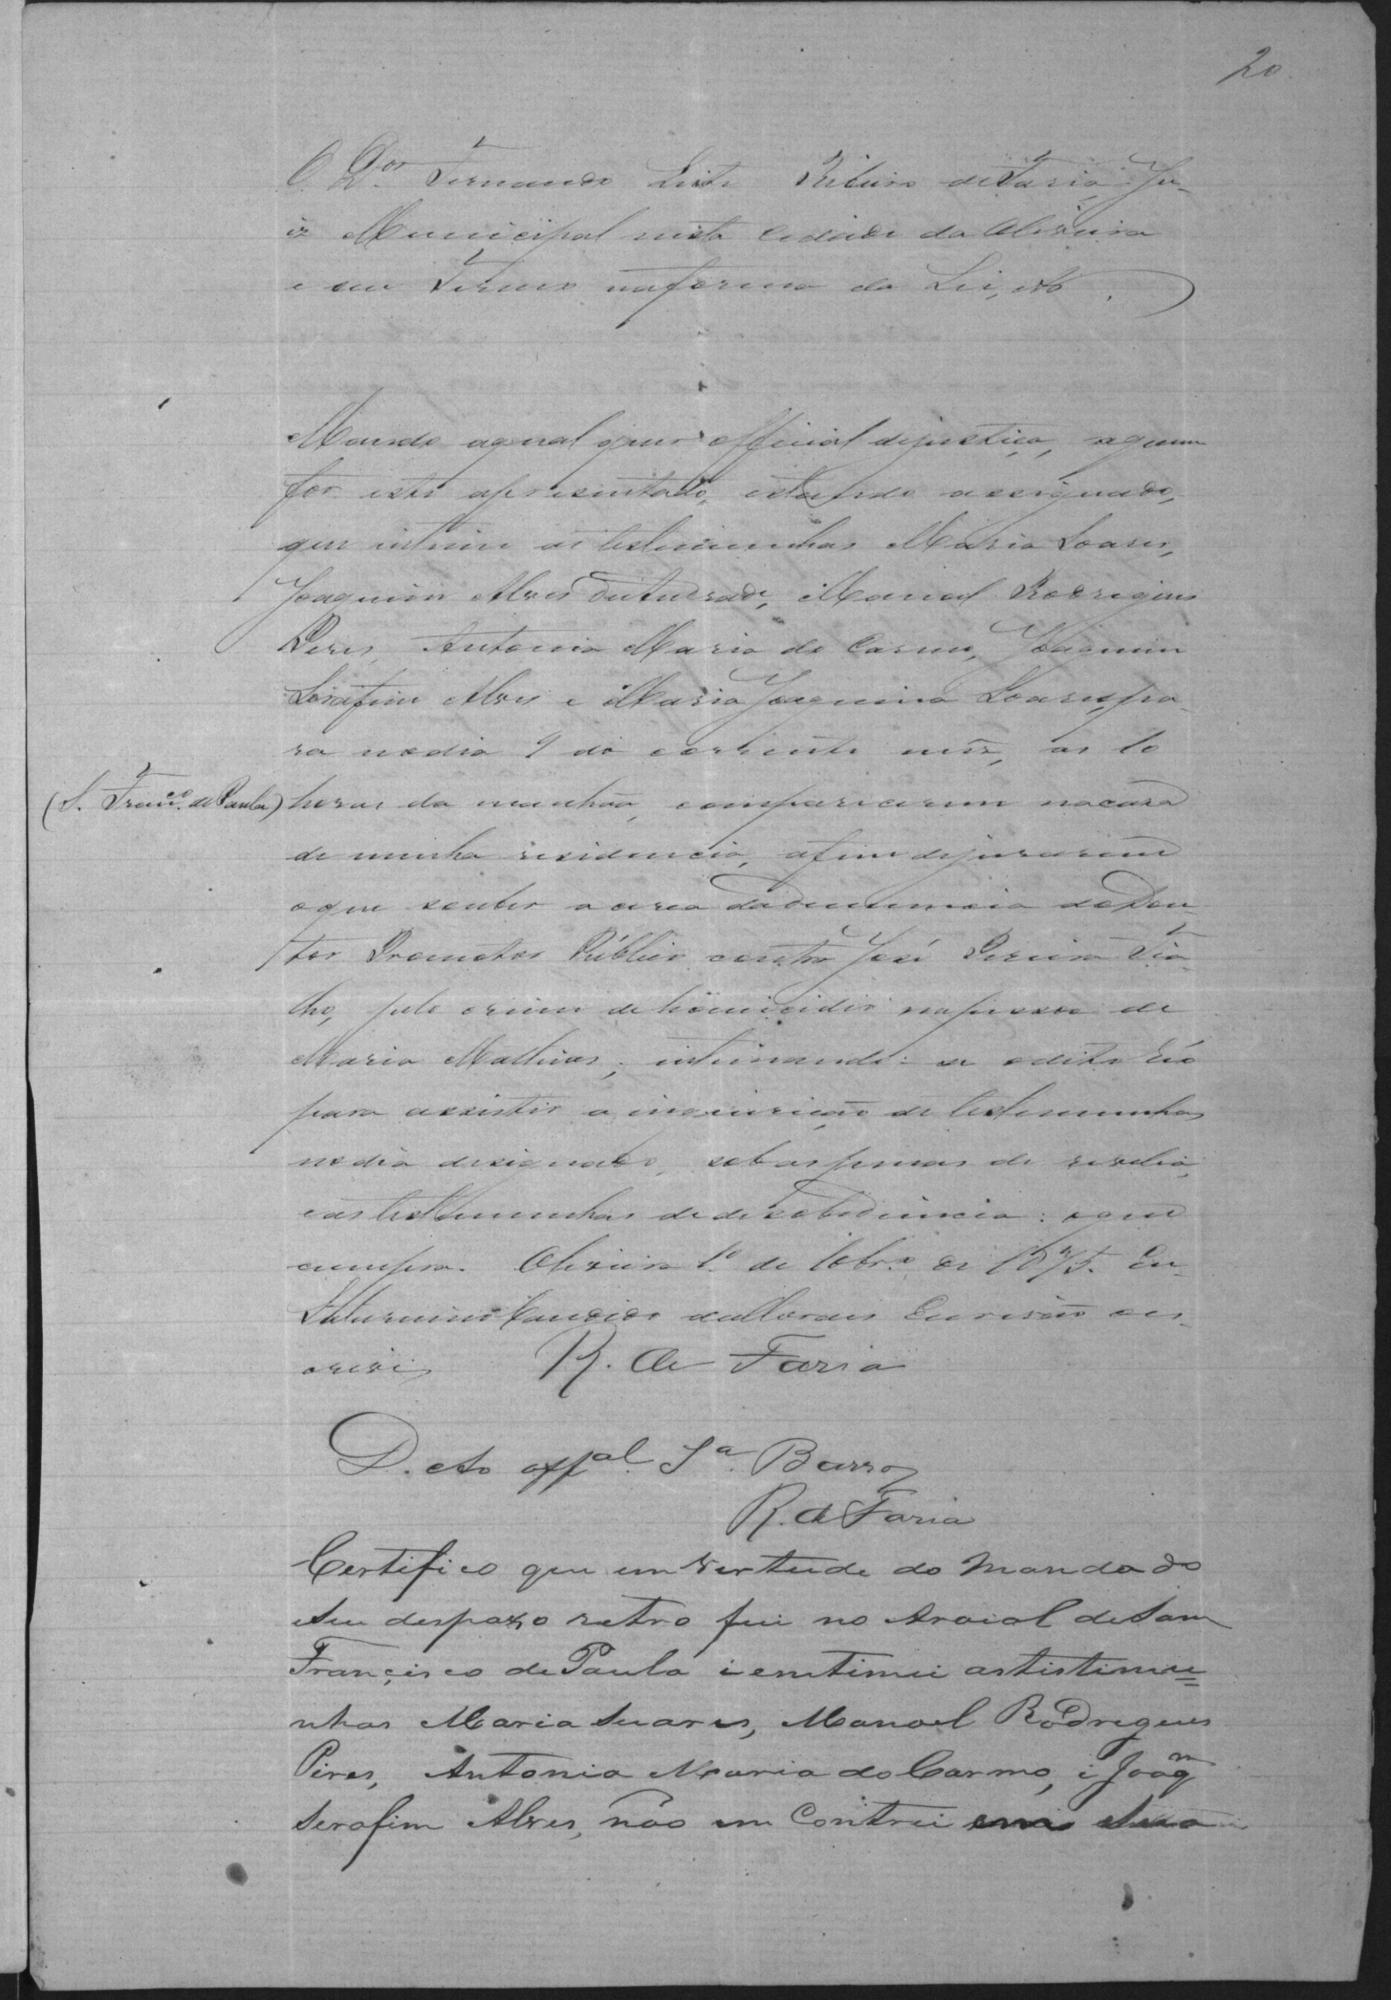 20
O Dor Fernando Leite Ribeiro de Faria Ju-
iz Municipal nesta Cidade da Oliveira
e seu Termo na forma da Lei, etc.
Mando aqualquer official dejustiça, aquem
for este apresentado, estando assignado,
que intime as testemunhas Maria Soares,
Joaquim Alves de Andrade, Manoel Rodrigues
Peres, Antonia Maria do Carmo, Joaquim
Serafim Alves e Maria Joaquina Soares, pa-
ra nodia 9 do corrente mez, as 10
(S. Franco. de Paula) horas da manhãa, comparecerem nacasa
de minha residencia, afim dejurarem
oque souber acerca dadenuncia do Dou-
tor Promotor Público contra José Pereira
pelo crime de homicidio napessoa de
Maria Mathias; intimando-se odito réo
para assistir a inquirição de testemunhas
nodia designado, sobaspenas de revelia,
eas testemunhas de desobediencia: oque
cumpra. Oliveira 1º de 10brº de 1875. Eu
Saturnino Candido de Moraes Escrivão o es-
crevi
R. de Faria
D. ao offal. Sa. Barros
R. de Faria
Certifico que em vertude do mandado
seu despaxo retro fui no Araial de Sam
Françisco de Paula i entimei astistimu=
nhas Maria Suares, Manoel Rodrigues
Pires, Antonia Maria do Carmo, i Joaqm
Serafim Alves, não em Contrei em sua